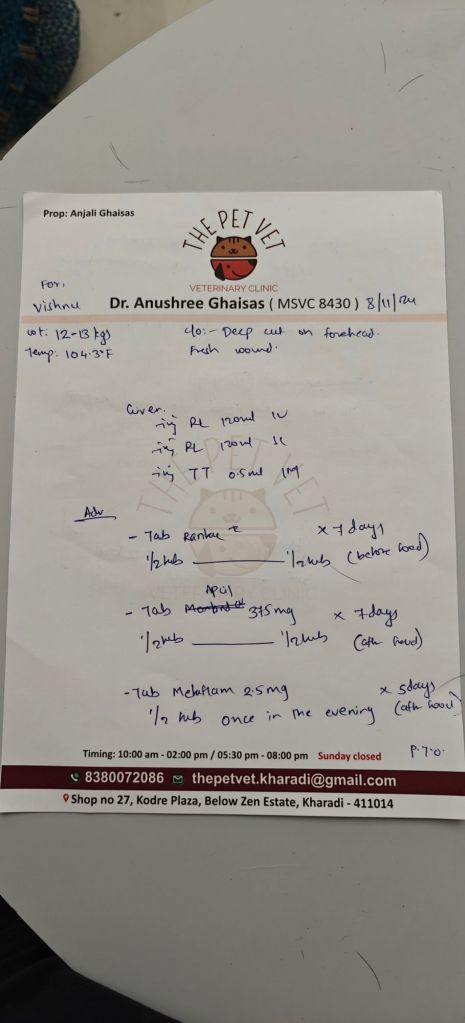 Prop: Anjali Ghaisas
THE PET VET
VETERINARY CLINIC
For,
Vishnu
Dr. Anushree Ghaisas ( MSVC 8430 ) 8/11/24
wt: 12-13 kgs
c/o:- Deep cut on forehead.
Temp: 104.3°F
Fresh wound.
Given.
- inj RL 120ml IV
- inj RL 120ml SC
- inj TT 0.5ml IM
THE PET VET
VETERINARY CLINIC
Adv
- Tab x 7 days
1/2 tab 1/2 tab (before food)
- Tab 375mg x 7days
1/2 tab 1/2 tab (aft food)
- Tab Meloflam 2.5mg x 5days
1/2 tab once in the evening (aft food)
P.T.O.
Timing: 10:00 am - 02:00 pm / 05:30 pm - 08:00 pm Sunday closed
8380072086 thepetvet.kharadi@gmail.com
Shop no 27, Kodre Plaza, Below Zen Estate, Kharadi - 411014